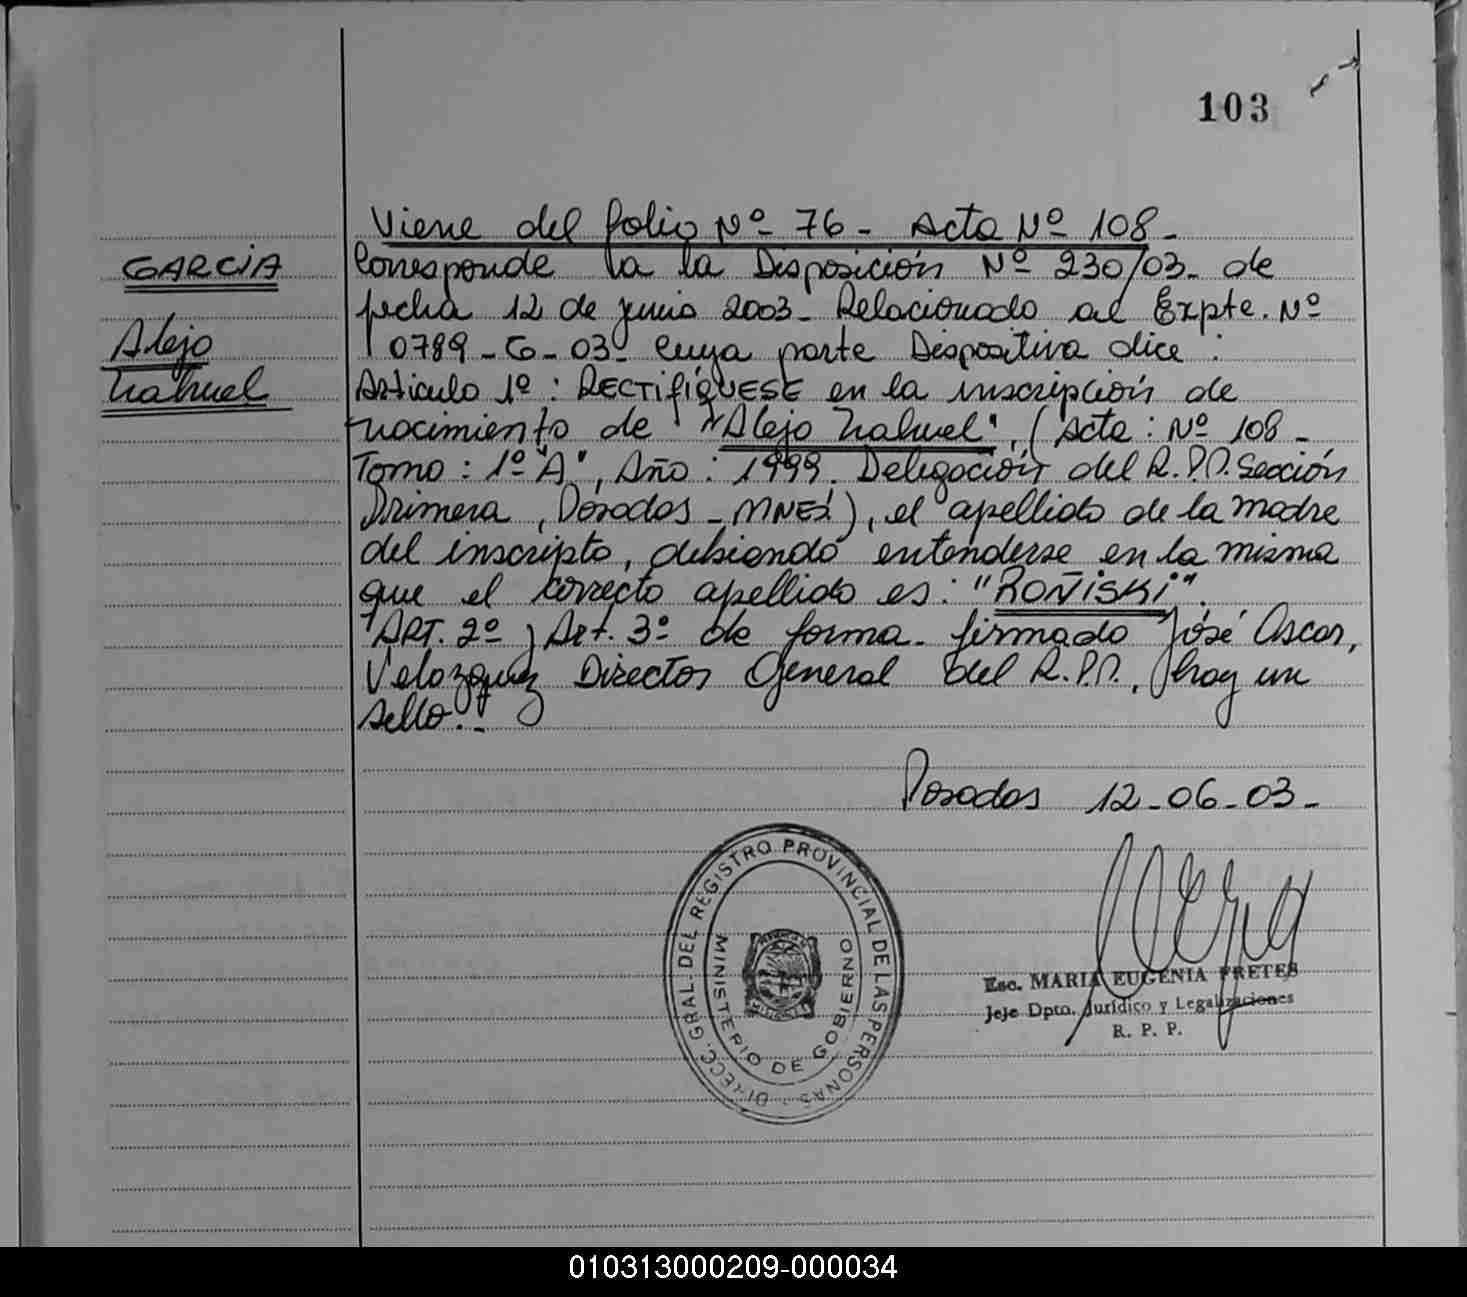 103
Viene del folio Nº 76 - Acta Nº 108 -
GARCIA
Corresponde a la Disposición Nº 230/03 - de
fecha 12 de junio 2003 - Relacionado al Expte. Nº
Alejo
0789 - G - 03 - cuya parte Dispositiva dice :
Nahuel
Articulo 1º : RECTIFÍQUESE en la inscripción de
nacimiento de "Alejo Nahuel", (Acta : Nº 108 -
Tomo : 1º "A", Año : 1999. Delegación del R.P.P. Sección
Primera, Posadas - MNES), el apellido de la madre
del inscripto, debiendo entenderse en la misma
que el correcto apellido es : "ROÑISKI".
ART. 2º y Art. 3º de forma. firmado José Oscar,
Velozquez Director General del R.P.P., hay un
sello. -
Posadas 12 - 06 - 03 -
DIRECC. GRAL. DEL REGISTRO PROVINCIAL DE LAS PERSONAS
MINISTERIO DE GOBIERNO
Esc. MARIA EUGENIA FRETES
Jefe Dpto. Jurídico y Legalizaciones
R. P. P.
010313000209-000034